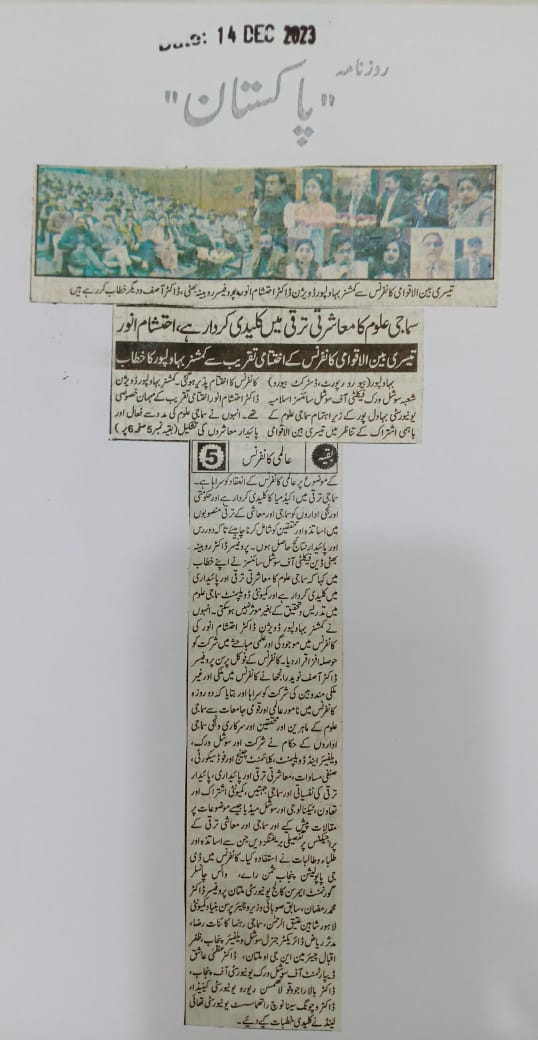 Date: 14 DEC 2023
روزنامہ
"پاکستان"
تیسری بین الاقوامی کانفرنس سے کمشنر بہاولپور ڈویژن ڈاکٹر احتشام انور، پروفیسر روبینہ بھٹی، ڈاکٹر آصف و دیگر خطاب کر رہے ہیں
سماجی علوم کا معاشرتی ترقی میں کلیدی کردار ہے، احتشام انور
تیسری بین الاقوامی کانفرنس کے اختتامی تقریب سے کمشنر بہاولپور کا خطاب
بہاولپور (بیورو رپورٹ، ڈسٹرکٹ بیورو)
شعبہ سوشل ورک فیکلٹی آف سوشل سائنسز اسلامیہ
یونیورسٹی بہاول پور کے زیر اہتمام سماجی علوم کے
باہمی اشتراک کے تناظر میں تیسری بین الاقوامی
کانفرنس کا اختتام پذیر ہو گئی۔ کمشنر بہاولپور ڈویژن
ڈاکٹر احتشام انور اختتامی تقریب کے مہمان خصوصی
تھے۔ انہوں نے سماجی علوم کی مدد سے فعال اور
پائیدار معاشروں کی تشکیل (بقیہ نمبر 5 صفحہ 6 پر)
بقیہ
عالمی کانفرنس
5
کے موضوع پر عالمی کانفرنس کے انعقاد کو سراہا ہے۔
سماجی ترقی میں اکیڈمیا کا کلیدی کردار ہے اور حکومتی
اور نجی اداروں کو سماجی اور معاشی کے ترقی منصوبوں
میں اساتذہ اور محققین کو شامل کرنا چاہئے تاکہ دور رس
اور پائیدار نتائج حاصل ہوں۔ پروفیسر ڈاکٹر روبینہ
بھٹی ڈین فیکلٹی آف سوشل سائنسز نے اپنے خطاب
میں کہا کہ سماجی علوم کا معاشرتی ترقی اور پائیداری
میں کلیدی کردار ہے اور کمیونٹی ڈویلپمنٹ سماجی علوم
میں تدریس و تحقیق کے بغیر موثر نہیں ہو سکتی۔ انہوں
نے کمشنر بہاولپور ڈویژن ڈاکٹر احتشام انور کی
کانفرنس میں موجودگی اور علمی مباحثے میں شرکت کو
حوصلہ افزا قرار دیا۔ کانفرنس کے فوکل پرسن پروفیسر
ڈاکٹر آصف نوید رانجھا نے کانفرنس میں ملکی اور غیر
ملکی مندوبین کی شرکت کو سراہا اور بتایا کہ دو روزہ
کانفرنس میں نامور عالمی اور قومی جامعات سے سماجی
علوم کے ماہرین اور محققین اور سرکاری و نجی سماجی
اداروں کے حکام نے شرکت اور سوشل ورک،
ویلفیئر اینڈ ڈویلپمنٹ، کلائمنٹ چینج اور فوڈ سیکورٹی،
صنفی مساوات، معاشرتی ترقی اور پائیداری، پائیدار
ترقی کی نفسیاتی اور سماجی جہتیں، کمیونٹی اشتراک اور
تعاون، ٹیکنالوجی اور سوشل میڈیا جیسے موضوعات پر
مقالات پیش کیے اور سماجی اور معاشی ترقی کے
پراجیکٹس پر تفصیلی بریفنگز دیں جن سے اساتذہ اور
طلباء و طالبات نے استفادہ کیا۔ کانفرنس میں ڈی
جی پاپولیشن پنجاب ثمن رائے، وائس چانسلر
گورنمنٹ ایمرسن کالج یونیورسٹی ملتان پروفیسر ڈاکٹر
محمد رمضان، سابق صوبائی وزیر و چیئر پرسن بنیاد کمیونٹی
لاہور شاہین عتیق الرحمٰن، سماجی رہنما کائنات رضاء،
مدثر ریاض ڈائریکٹر جنرل سوشل ویلفیئر پنجاب، ظفر
اقبال چیئرمین این جی او ملتان، ڈاکٹر عظمیٰ عاشق
ڈیپارٹمنٹ آف سوشل ورک یونیورسٹی آف پنجاب،
ڈاکٹر بالا راجو یونیورسٹی کینیڈا،
ڈاکٹر یونیورسٹی تھائی
لینڈ نے کلیدی خطبات کیے دیئے۔